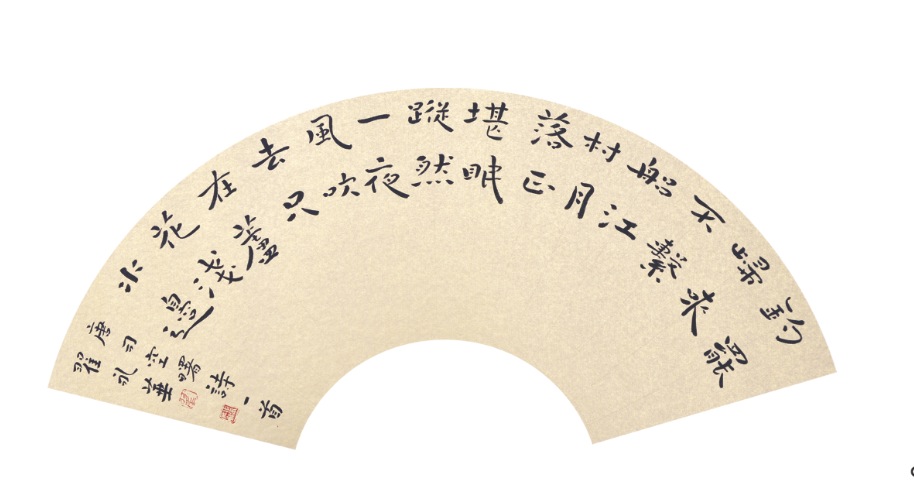 釣罷
歸來
不繫
船江
村月
落正
堪眠
蹤然
一夜
風吹
去只
在蘆
花淺
水邊
唐司空曙詩一首
翟礼華